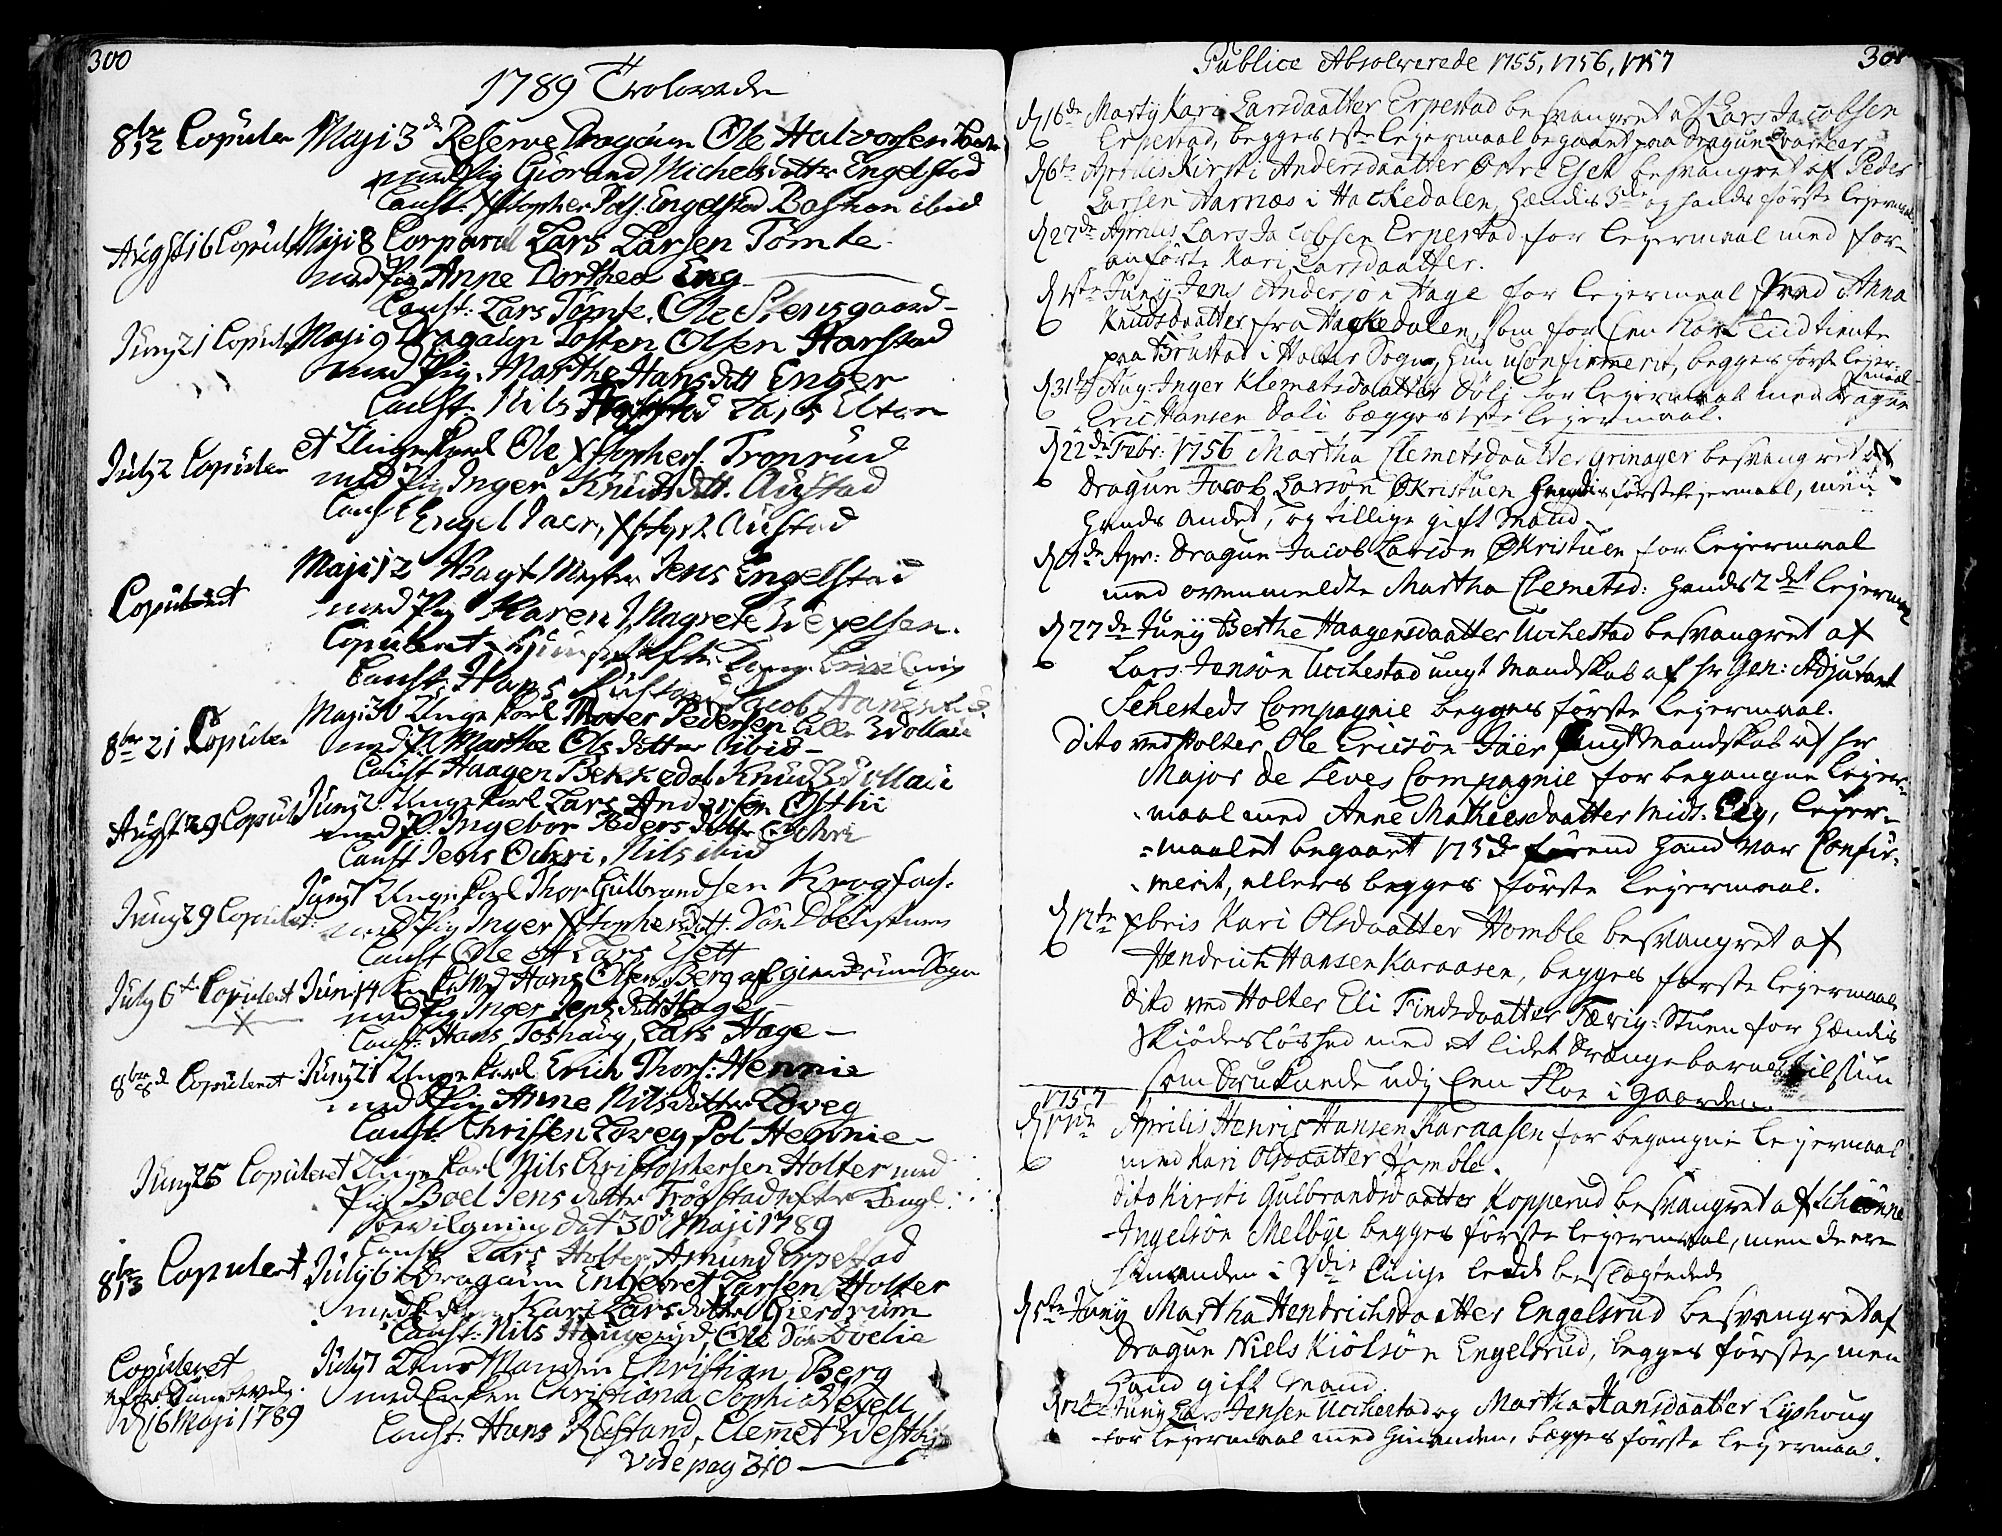 300
1789 Trolovede
8br 12 Copuleret Maji 3d Reserve Dragoun Ole Halvorsen
med Pig Giorand Michelsdatter Engelstad
Caust: Xstopher Pols. Engelstad Bastian ibid
Augst 16 Copul: Maji 8 Corporal Lars Larsen Tømte
med Pig Anne Dorthea Eng
Caust: Lars Tømte, Ole Stensgaard
Juny 21 Copul: Maji 9 Dragoun Tosten Olsen Harstad
med Pig. Marthe Hansdatt Enger
Caust. Nils Lars Elton
July 2 Copuleret et Ungekarl Ole Xstophers. Tronrud
med Pig Inger Knudsdatt. Austad
Caust Engel Jaer, Austad
Copuleret Maji 12 Vagt Mester Jens Engelstad
med Pig Karen Magrete Wexelsen.
Copuleret efter Kong: bevilning
Caust: Hans Rustand, Jacob
8br 21 Copuleret Maji 30 Ungekarl Thorer Pedersen Lille Wollaue
med P. Marthe Olsdatter ibid
Caust Haagen Bekkedal Knud Wollaue
Augst 29 Copul: Juny 2. Ungekarl Lars Andersen Østbie
med P. Ingebor Pedersdatter Ochri
Caust Jens Ochri, Nils ibid
Juny 29 Copuleret: Juny 7 Ungekarl Thor Gulbrandsen Krogfos.
med Pig Inger Xstophersdatt:
Caust Ole et Lars Esett
July 6te Copuleret Juni 14 Hans Olsen Berg af Gierdrum Sogn
med Pig Inger Jensdatt Hage
Caust: Hans Toshaug, Lars Hage
8br 8d Copuleret Juny 21 Ungekarl Erich Thors: Hennie
med Pig Anne Nilsdatter Løveg
Caust: Christen Løveg Pol Hennie
Juny 25 Copuleret Ungekarl Nils Christophersen Holter med
Pig Boel Jensdatter Trøgstad efter Kongl.
bevilgning dat 30d Maji 1789
Caust Lars Holter, Amund Erpestad
8br 13 Copuleret July 6te Dragoun Engebret Larsen Holter
med Kari Larsdatter Gierdrum
Caust: Nils Haugerud, Ole
Copuleret July 7 Christian Berg
efter Kongl bevilg. med Enken Christiana Sophia Wexell
d 16 Maji 1789 Caust: Hans Rustand, Clemet Westbye
Vide pag 310
Publice Absolverede 1755, 1756, 1757 301
d 16de Martij Kari Larsdaatter Erpestad besvangret af Lars Jacobsen
Erpestad, begges 1ste lejermaal begaaet paa Dragun Qvarteer
d 6te Aprilis Kirsti Andersdaatter Øvre Eset besvangret af Peder
Larsen Aarnæs i Hackedalen, hendes 3de og hands første lejermaal
d 27de Aprilis Lars Jacobsen Erpestad for lejermaal med for-
anførte Kari Larsdaatter.
d 1ste Juny Jens Andersøn Hage for lejermaal med Anna
Knudsdaatter fra Hackedalen, som for een kort tiid tiente
paa Brustad i Holter Sogn, hun uConfirmerit, begges første lejer-
maal
d 31te Aug: Inger Klemetsdaatter Døli for lejermaal med Dragun
Eric Hansen Døli begges 1ste lejermaal.
d 22de Febr: 1756 Martha Clemetsdaatter Grinager besvangret af
Dragun Jacob Larsøn Økristuen hendes første lejermaal, men
hands andet, og tillige gift Mand
d 4de Apr: Dragun Jacob Larsøn Økristuen for lejermaal
med ovenmeldte Martha Clemetsd: hands 2det lejermaal
d 27de Juny Berthe Haagensdaatter Uochestad besvangret af
Lars Jensøn Uochestad ungt Mandskab af Hr Gen: Adjutant
Sehesteds Compagnie begges første lejermaal.
Dito ved Holter Ole Ericsøn Jaer ungt Mandskab af Hr
Major de Seves Compagnie for begangne lejer-
maal med Anne Mathiesdaatter Mids. Eeg, lejer-
maalet begaaet 175 førend hand var Confir-
merit, ellers begges første lejermaal.
d 12te Xbris Kari Olsdaatter Homble besvangret af
Hendrich Hansen Karaasen, begges første lejermaal
Dito ved Holter Eli Findsdaatter Færig-Stuen for hendes
skiødesløshed med et lidet Drengebarnes tilsiun
som druknede udj Een Floe i Gaarden.
1757
d 11te Aprilis Henrich Hansen Karaasen for begangne lejermaal
med Kari Olsdaatter Homble.
Dito Kirsti Gulbrandsdaatter Kopperud besvangret af Schiønne
Ingelsøn Melbye begges første lejermaal, men de ere
hinanden i 3die liinje Ledd beslægtede
d 5te Juny Martha Hendrichsdaatter Engelsrud besvangret af
Dragun Niels Kiølsøn Engelsrud, begges første, men
hand gift Mand
d 12te Juny Lars Jensen Uochestad og Martha Hansdaatter Lyshoug
for lejermaal med hinanden, begges første lejermaal.